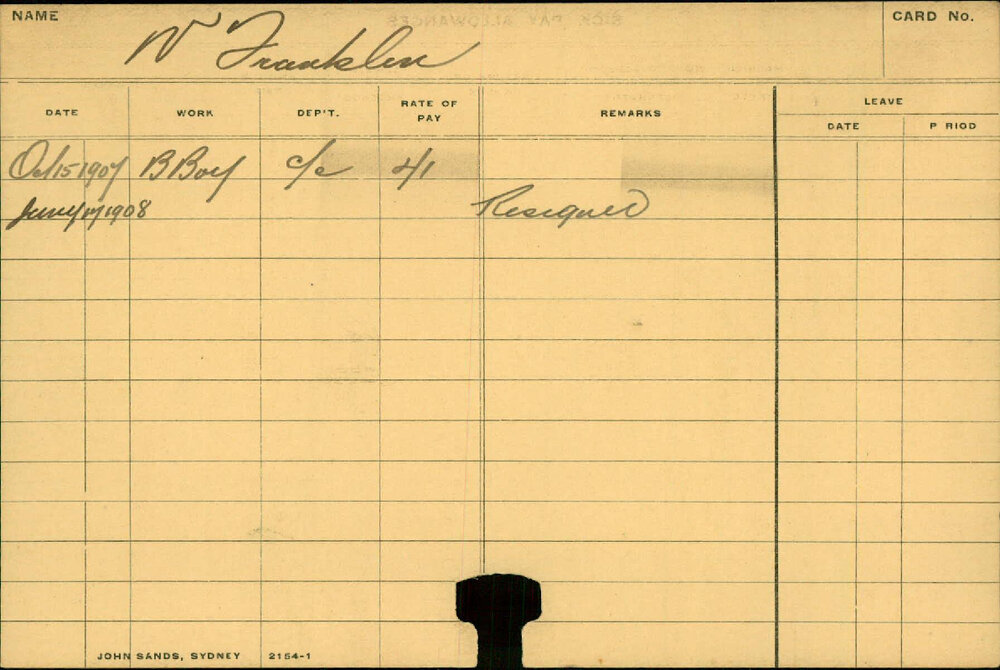 NAME
CARD No.
W Franklin
DATE WORK DEP'T. RATE OF PAY REMARKS LEAVE
DATE P RIOD
Oct 15 1907 B Boy c/c 4/
June 17 1908 Resigned
JOHN SANDS, SYDNEY 2154-1